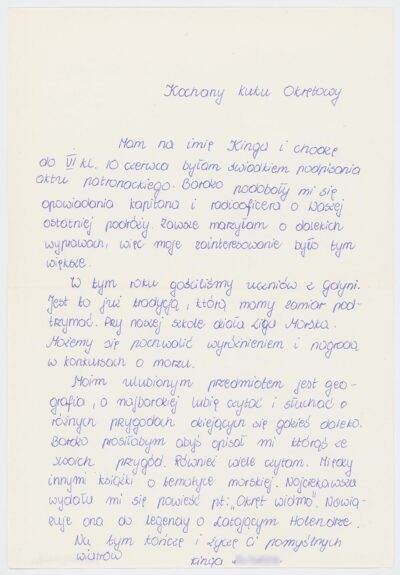 Kochany Kuku Okrętowy
Mam na imię Kinga i chodzę
do VI kl. 10 czerwca byłam świadkiem podpisania
aktu patronackiego. Bardzo podobały mi się
opowiadania kapitana i radiooficera o Waszej
ostatniej podróży. Zawsze marzyłam o dalekich
wyprawach, więc moje zainteresowanie było tym
większe.
W tym roku gościliśmy uczniów z Gdyni.
Jest to już tradycja, którą mamy zamiar pod-
trzymać. Przy naszej szkole działa Liga Morska.
Możemy się pochwalić wyróżnieniem i nagrodą
w konkursach o morzu.
Moim ulubionym przedmiotem jest geo-
grafia, a najbardziej lubię czytać i słuchać o
różnych przygodach dziejących się gdzieś daleko.
Bardzo prosiłabym abyś opisał mi którąś ze
swoich przygód. Również wiele czytam. Między
innymi książki o tematyce morskiej. Najciekawsza
wydała mi się powieść pt: „Okręt widmo". Nawią-
zuje ona do legendy o Latającym Holendrze.
Na tym kończę i życzę Ci pomyślnych
wiatrów
Kinga